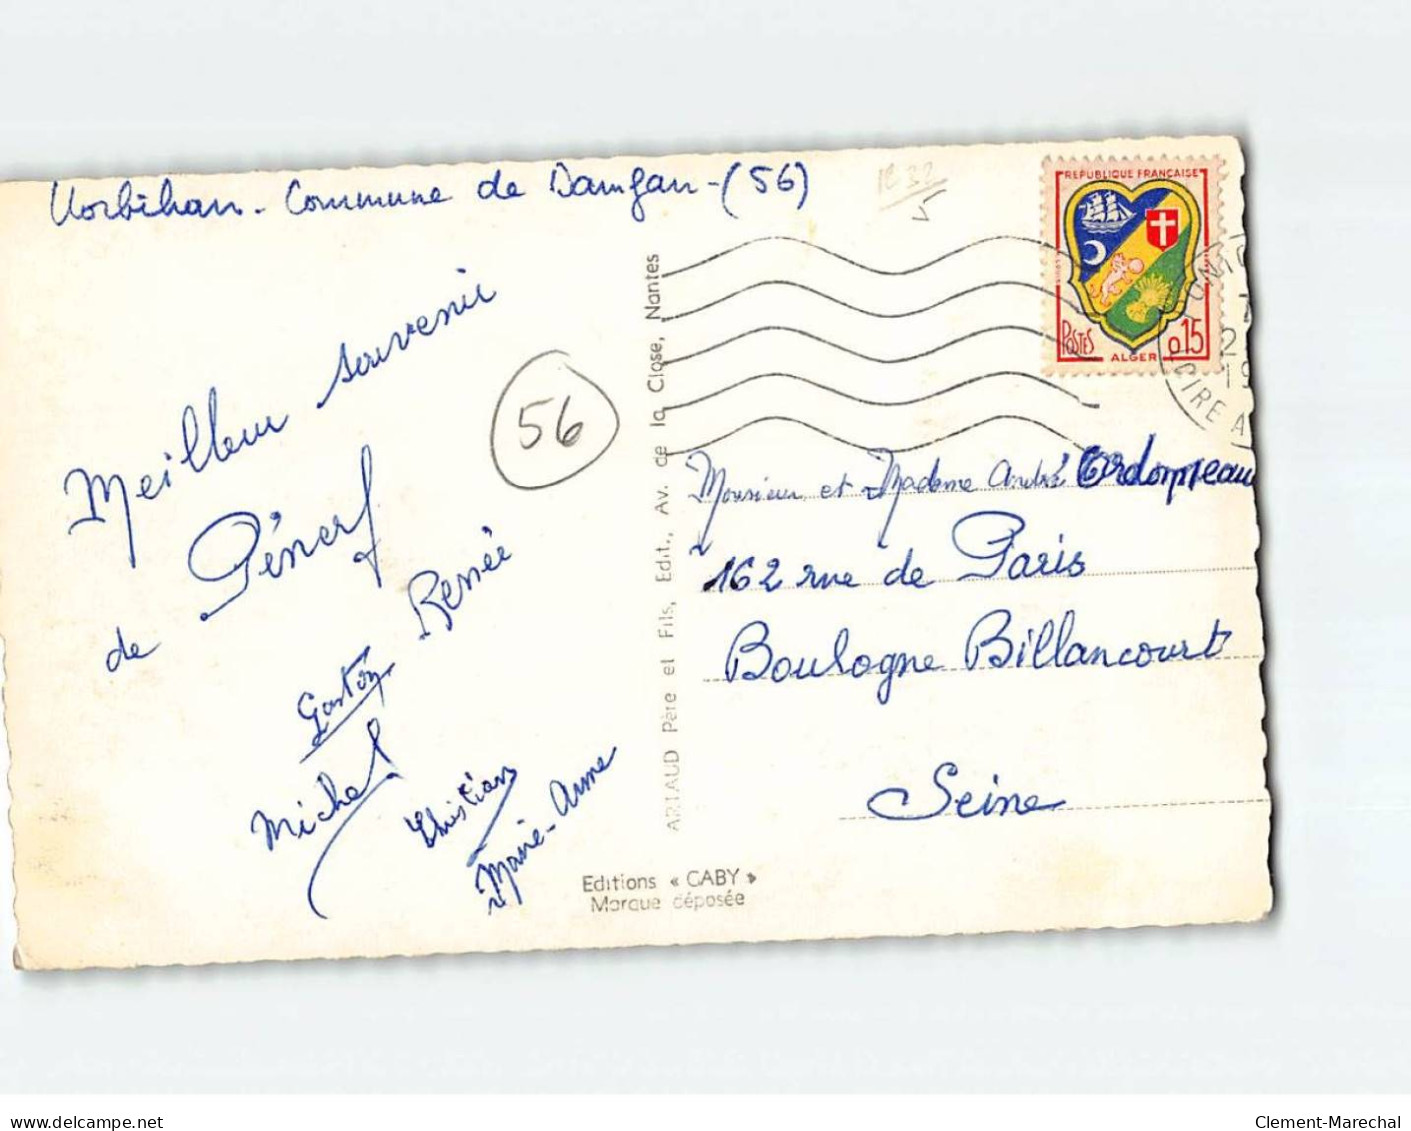 Morbihan - Commune de Damgan - (56)
RÉPUBLIQUE FRANÇAISE
POSTES
0.15
ALGER
2
19
CIRE A
Meilleur souvenir
de Pénerf
Renée
Gaston
Michel
Christian
Marie-Anne
56
ARTAUD Père et Fils, Edit., Av. de la Close, Nantes
Monsieur et Madame André
162 rue de Paris
Boulogne Billancourt
Seine
Editions « GABY »
Marque déposée
www.delcampe.net
Clement-Marechal